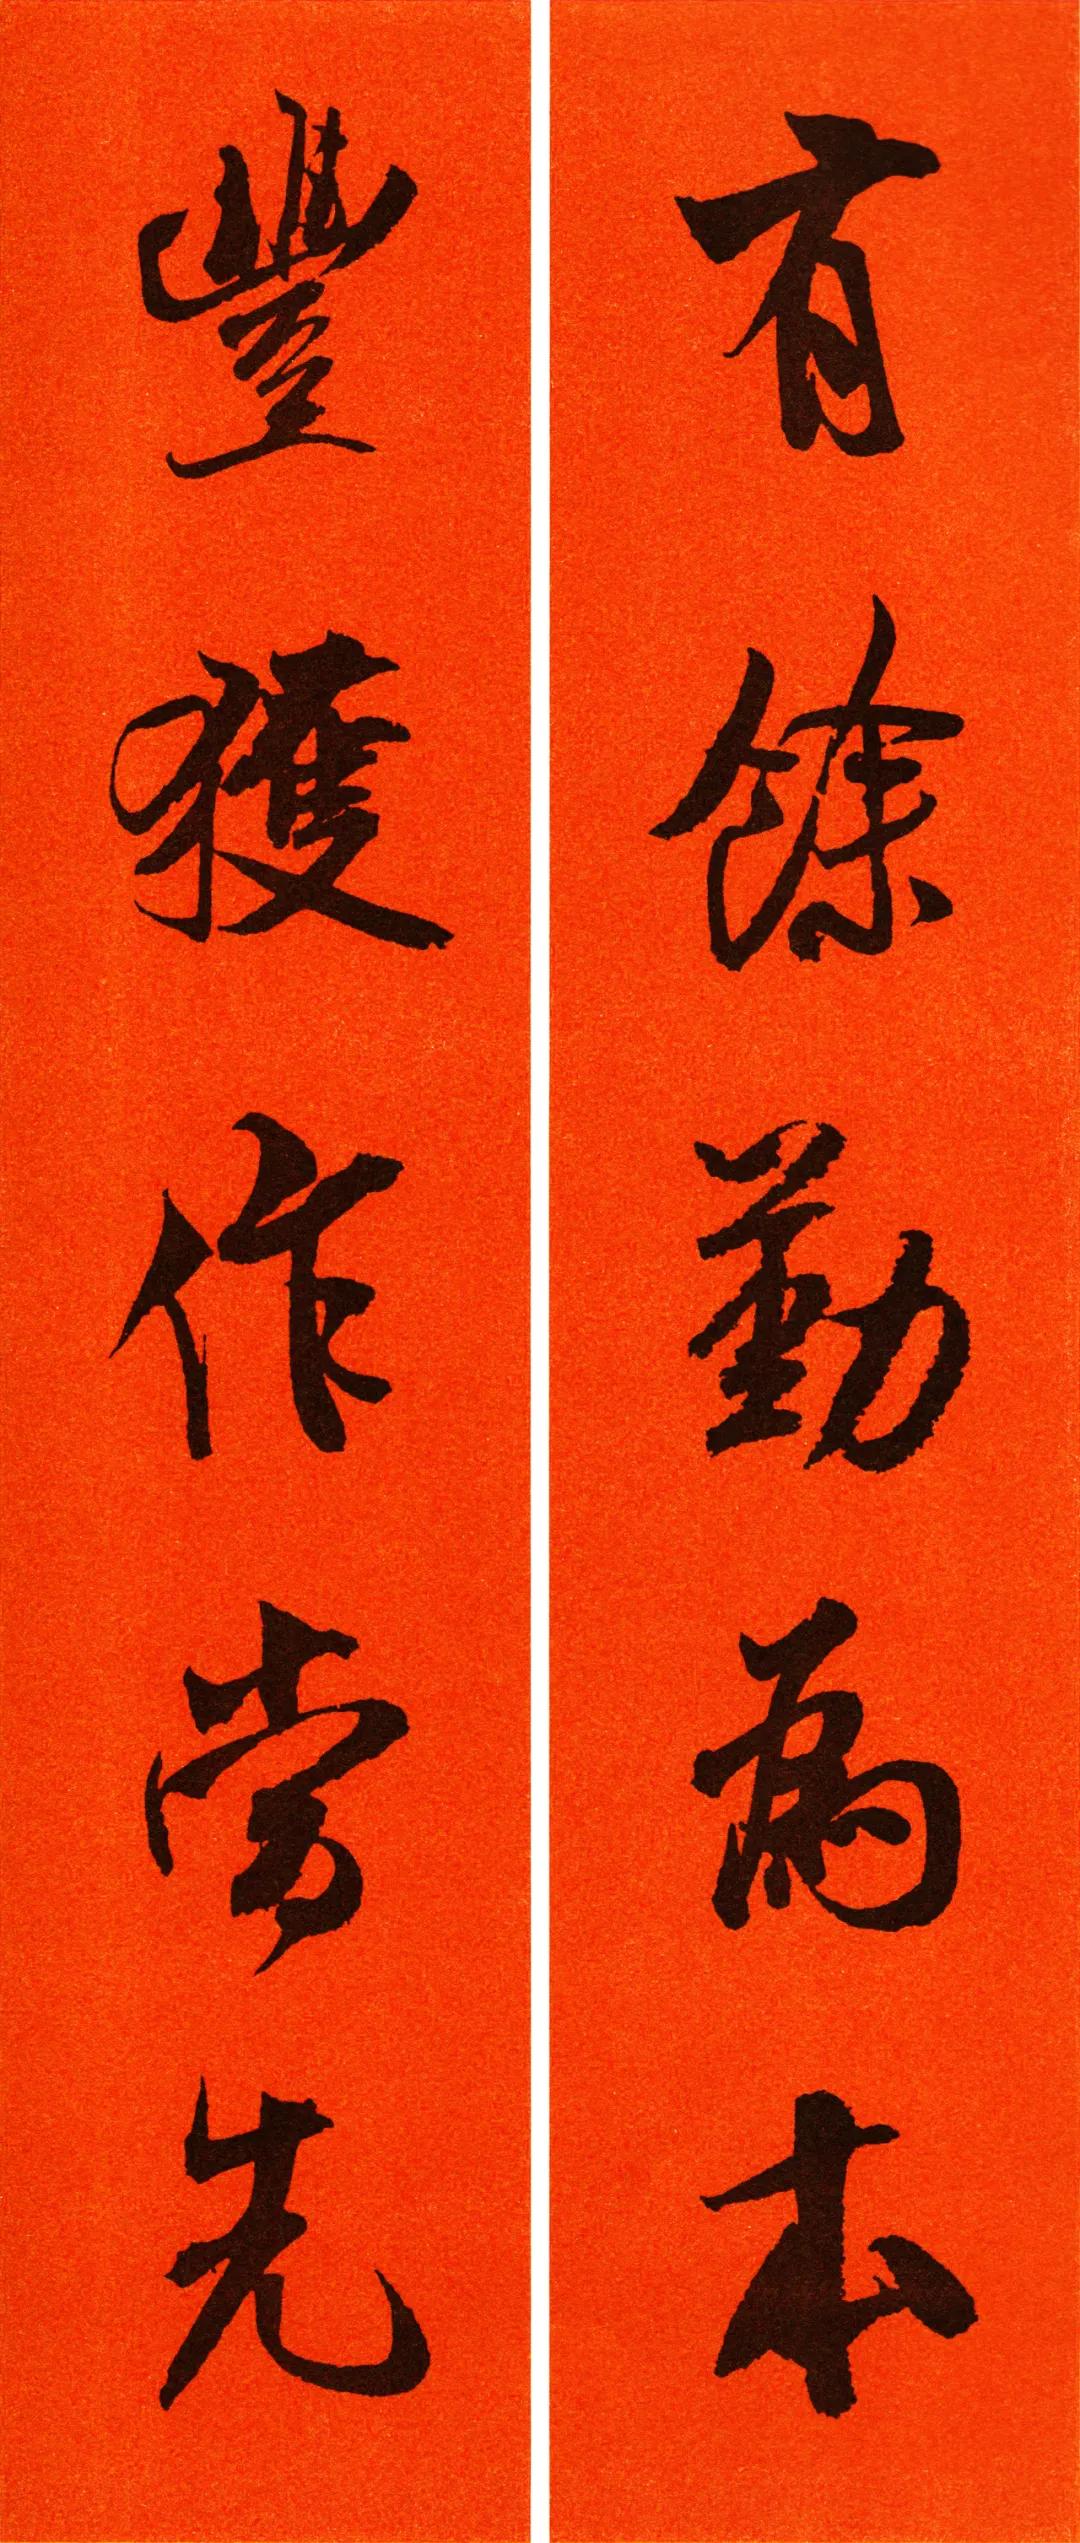 有餘勤爲本
豐獲作勞先